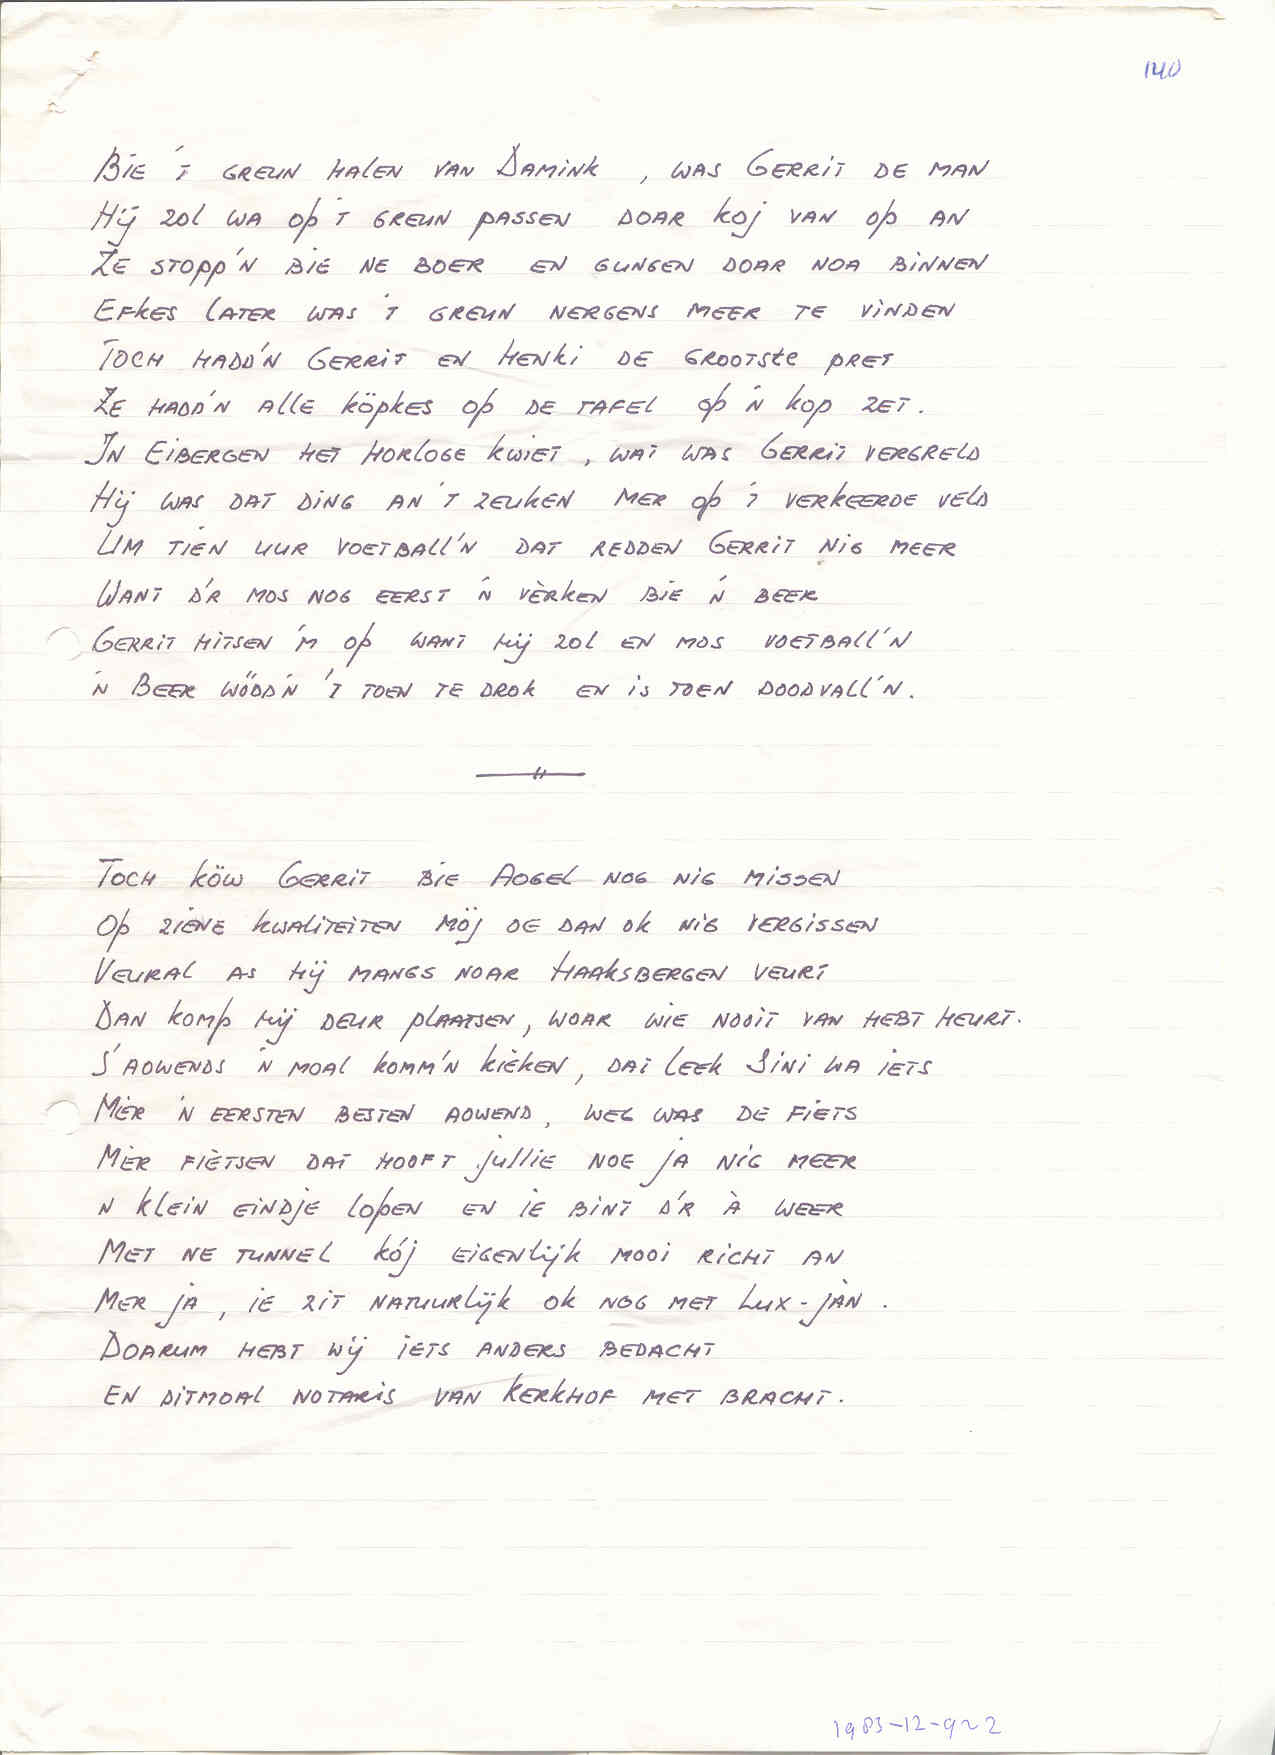 140
Bie 't greun halen van Damink, was Gerrit de man
Hij zol wa op 't greun passen doar koj van op an
Ze stopp'n bie ne boer en gungen doar noa binnen
Efkes later was 't greun nergens meer te vinden
Toch hadd'n Gerrit en Henki de grootste pret
Ze hadd'n alle köpkes op de tafel op 'n kop zet.
In Eibergen het horloge kwiet, wat was Gerrit vergreld
Hij was dat ding an 't zeuken mer op 't verkeerde veld
Um tien uur voetball'n dat redden Gerrit nig meer
Want d'r mos nog eerst 'n vèrken bie 'n beer
Gerrit hitsen 'm op want hij zol en mos voetball'n
'n Beer wödd'n 't toen te drok en is toen doodvall'n.
Toch köw Gerrit bie Aogel nog nig missen
Op ziene kwaliteiten möj oe dan ok nig vergissen
Veural as hij mangs noar Haaksbergen veurt
Dan komp hij deur plaatsen, woar wie nooit van hebt heurt.
S'aowends 'n moal komm'n kieken, dat leek Sini wa iets
Mèr 'n eersten besten aowend, weg was de fiets
Mèr fietsen dat hooft jullie noe ja nig meer
n klein eindje lopen en ie bint d'r à weer
Met ne tunnel kój eigenlijk mooi richt an
Mer ja, ie zit natuurlijk ok nog met Lux-Jàn.
Doarum hebt wij iets anders bedacht
En ditmoal notaris van Kerkhof met bracht.
1983-12-9~2